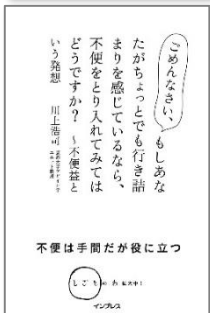 ごめんなさい、もしあな
たがちょっとでも行き詰
まりを感じているなら、
不便をとり入れてみては
どうですか? ~不便益と
いう発想 川上浩司
不便は手間だが役に立つ
しごとのわ
インプレス